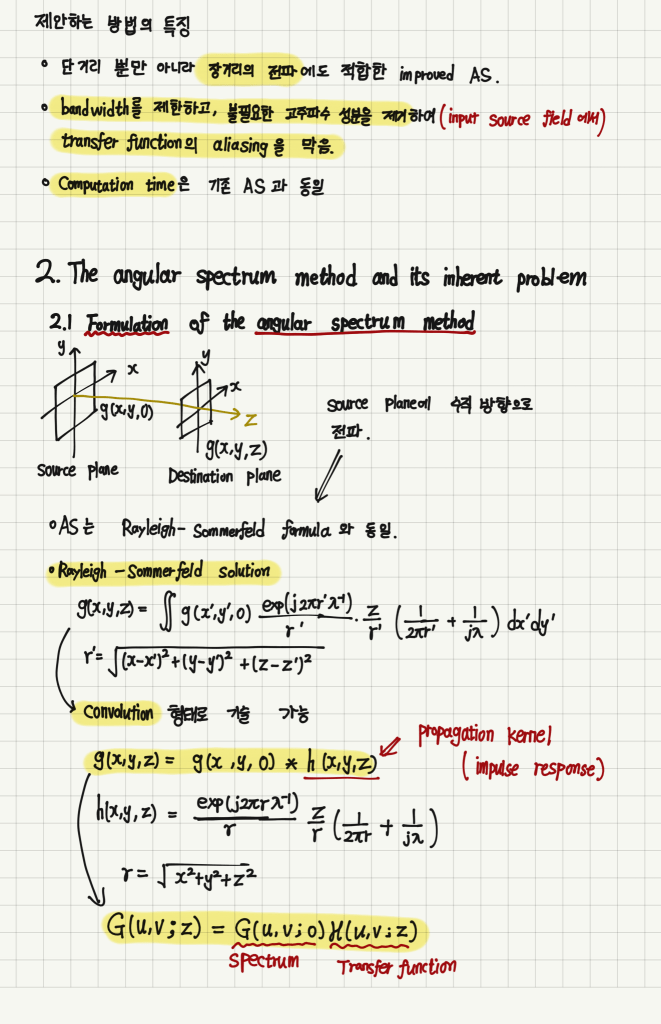 제안하는 방법의 특징
◦ 단거리 뿐만 아니라 장거리의 전파에도 적합한 improved AS.
◦ bandwidth를 제한하고, 불필요한 고주파수 성분을 제거하여 (input source field 에서)
transfer function의 aliasing을 막음.
◦ Computation time은 기존 AS과 동일
2. The angular spectrum method and its inherent problem
2.1 Formulation of the angular spectrum method
y x g(x,y,0)
Source plane
y x z g(x,y,z)
Destination plane
Source Plane에 수직 방향으로
전파.
◦ AS는 Rayleigh-Sommerfeld formula 와 동일.
• Rayleigh-Sommerfeld solution
g(x,y,z) = ∬ g(x',y',0) exp(j2πr'λ⁻¹)/r' · z/r' (1/2πr' + 1/jλ) dx'dy'
r' = √((x-x')²+(y-y')²+(z-z')²)
Convolution 형태로 기술 가능
g(x,y,z) = g(x,y,0) * h(x,y,z)
propagation kernel
(impulse response)
h(x,y,z) = exp(j2πrλ⁻¹)/r z/r (1/2πr + 1/jλ)
r = √(x²+y²+z²)
G(u,v;z) = G(u,v;0) H(u,v:z)
Spectrum Transfer function